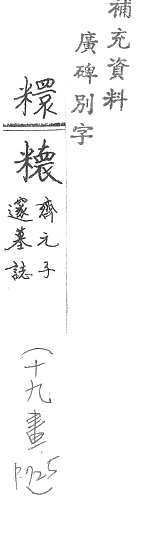 補充資料
廣碑別字
糫
𥽋
齊元子
邃墓誌
(十九畫.
P.725)